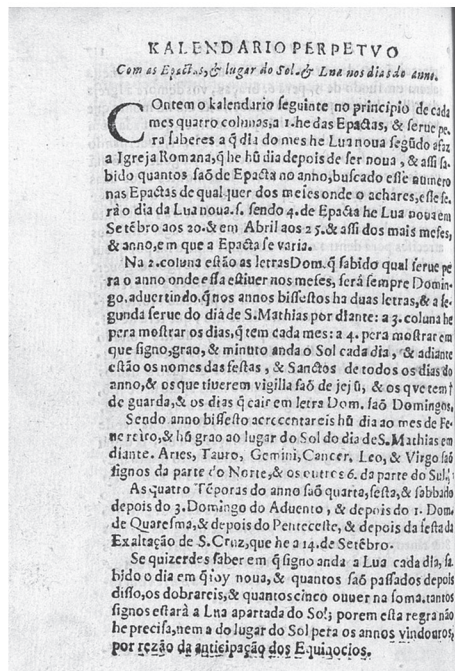 KALENDARIO PERPETVO
Com as Epactas, & lugar do Sol & Lua nos dias do anno.
COntem o kalendario seguinte no principio de cada
mes quatro colunas, a 1. he das Epactas, & serue pe-
ra saberes a q̃ dia do mes he Lua noua segũdo a faz
a Igreja Romana, q̃ he hũ dia depois de ser noua, & assi sa-
bido quantos saõ de Epacta no anno, buscado esse numero
nas Epactas de qualquer dos meses onde o achares, esse se-
rá o dia da Lua noua. s. sendo 4. de Epacta he Lua noua em
Setẽbro aos 20. & em Abril aos 25. & assi dos mais meses,
& anno, em que a Epacta se varia.
Na 2. coluna estão as letras Dom. q̃ sabido qual serue pe-
ra o anno onde essa estiuer nos meses, será sempre Domin-
go, aduertindo, q̃ nos annos bissestos ha duas letras, & a se-
gunda serue do dia de S. Mathias por diante: a 3. coluna he
pera mostrar os dias, q̃ tem cada mes: a 4. pera mostrar em
que signo, grao, & minuto anda o Sol cada dia, & adiante
estão os nomes das festas, & Sanctos de todos os dias do
anno, & os que tiuerem vigilia saõ de jejũ, & os qve tem †
de guarda, & os dias q̃ cair em letra Dom. saõ Domingos.
Sendo anno bissesto accrecentareis hũ dia ao mes de Fe-
uereiro, & hũ grao ao lugar do Sol do dia de S. Mathias em
diante. Aries, Tauro, Gemini, Cancer, Leo, & Virgo saõ
signos da parte do Norte, & os outros 6. da parte do Sul.
As quatro Tẽporas do anno saõ quarta, sesta, & sabbado
depois do 3. Domingo do Aduento, & depois do 1. Dom.
de Quaresma, & depois do Penteceste, & depois da festa da
Exaltação de S. Cruz, que he a 14. de Setẽbro.
Se quizerdes saber em q̃ signo anda a Lua cada dia, sa-
bido o dia em q̃ foy noua, & quantos saõ passados depois
disso, os dobrareis, & quantos cinco ouuer na soma, tantos
signos estará a Lua apartada do Sol; porem esta regra não
he precisa, nem a do lugar do Sol pera os annos vindouros,
por rezão da anticipação dos Equinocios.